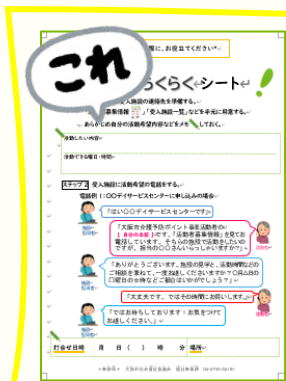 際に、お役立てください*
これ
らくらくシート
受入施設の連絡先を準備する。
募集情報
「受入施設一覧」などを手元に用意する。
あらかじめ自分の活動希望内容などをメモしておく。
活動したい内容
活動できる曜日・時間
ステップ2 受入施設に活動希望の電話をする。
電話例:○○デイサービスセンターに申し込みの場合
「はい○○デイサービスセンターです」
「大阪市介護予防ポイント事業活動者の
【自分の名前】です。「活動者募集情報」を見てお
電話しています。そちらの施設で活動をしたいの
ですが、担当の○○さんいらっしゃいますか?」
「ありがとうございます。施設の見学と、活動時間などの
ご相談を兼ねて、一度お越しくださいますか?○月△日の
□曜日の☆時などご都合はいかがでしょう?」
「大丈夫です。ではその時間にお伺いします。」
「ではお待ちしております!お気をつけて
お越しください。」
打合せ日時 月 日( ) 時 分 場所